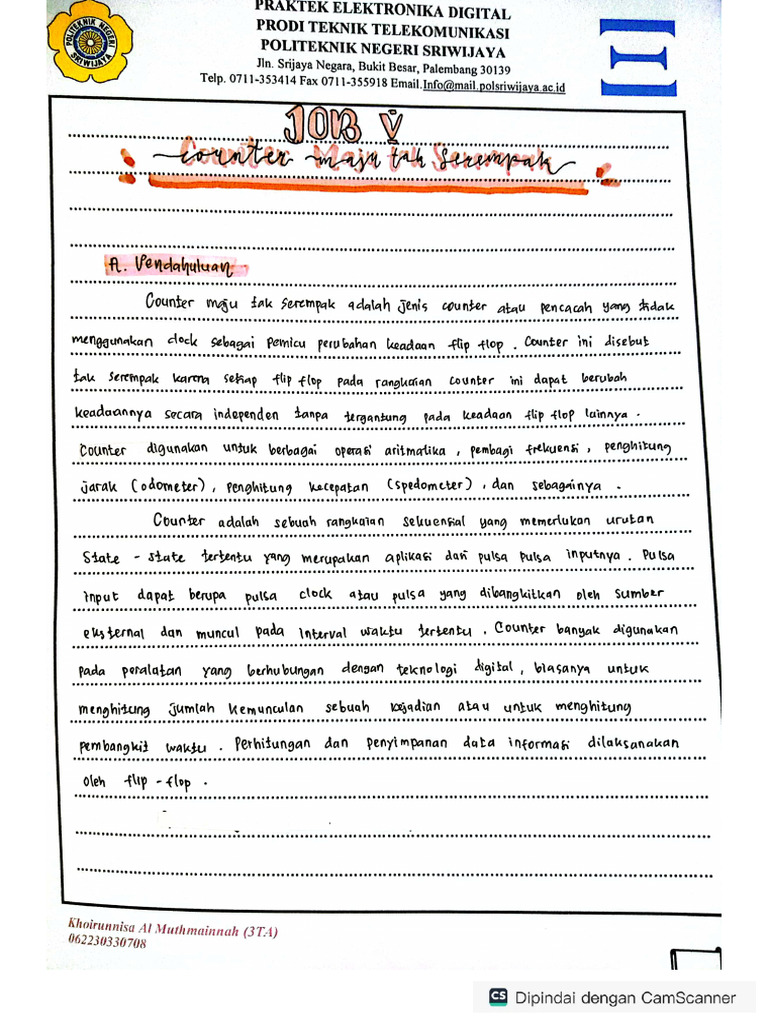 PRAKTEK ELEKTRONIKA DIGITAL
PRODI TEKNIK TELEKOMUNIKASI
POLITEKNIK NEGERI SRIWIJAYA
Jln. Srijaya Negara, Bukit Besar, Palembang 30139
Telp. 0711-353414 Fax 0711-355918 Email.Info@mail.polsriwijaya.ac.id
POLITEKNIK NEGERI
SRIWIJAYA
JOB V
Counter Maju tak Serempak
A. Pendahuluan
Counter maju tak serempak adalah jenis counter atau pencacah yang tidak
menggunakan clock sebagai pemicu perubahan keadaan flip flop. Counter ini disebut
tak serempak karena setiap flip flop pada rangkaian counter ini dapat berubah
keadaannya secara independen tanpa tergantung pada keadaan flip flop lainnya.
Counter digunakan untuk berbagai operasi aritmatika, pembagi frekuensi, penghitung
jarak (odometer), penghitung kecepatan (spedometer), dan sebagainya.
Counter adalah sebuah rangkaian sekuensial yang memerlukan urutan
State - state tertentu yang merupakan aplikasi dari pulsa pulsa inputnya. Pulsa
input dapat berupa pulsa clock atau pulsa yang dibangkitkan oleh sumber
eksternal dan muncul pada interval waktu tertentu. Counter banyak digunakan
pada peralatan yang berhubungan dengan teknologi digital, biasanya untuk
menghitung jumlah kemunculan sebuah kejadian atau untuk menghitung
pembangkit waktu. Perhitungan dan penyimpanan data informasi dilaksanakan
oleh flip-flop.
Khoirunnisa Al Muthmainnah (3TA)
062230330708
CS Dipindai dengan CamScanner